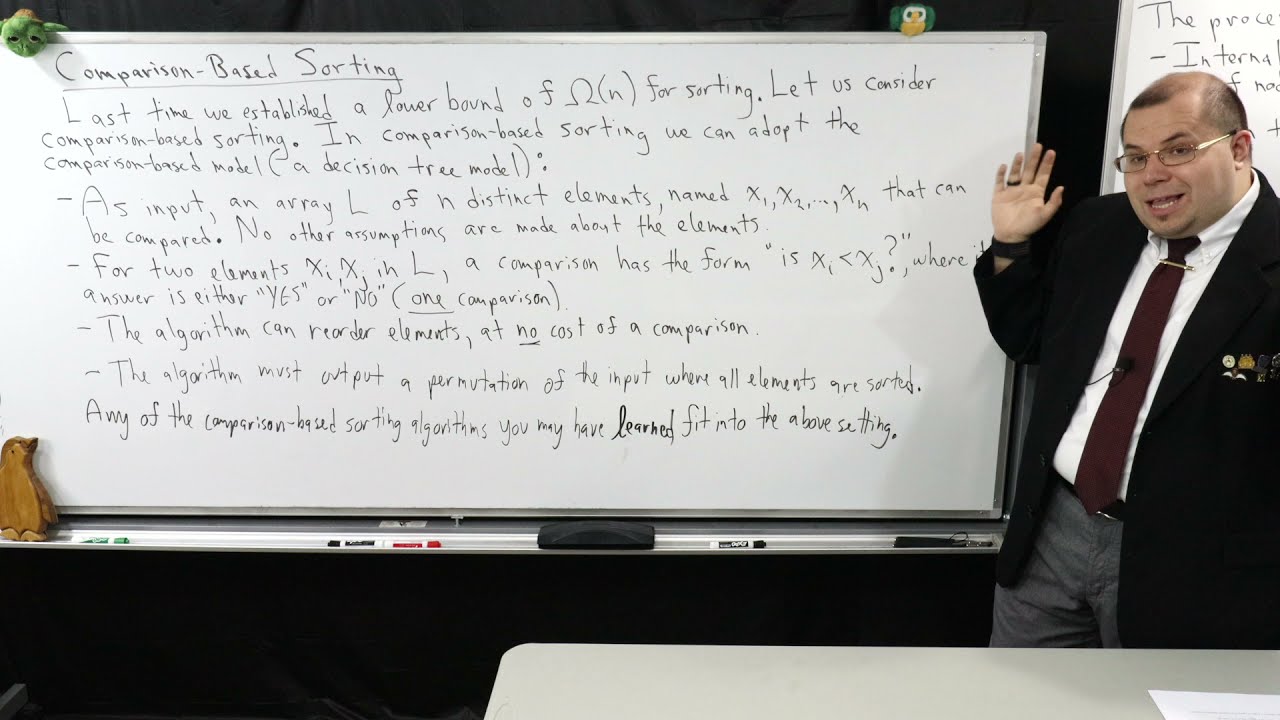 Comparison-Based Sorting
Last time we established a lower bound of Ω(n) for sorting. Let us consider
comparison-based sorting. In comparison-based sorting we can adopt the
comparison-based model (a decision tree model):
- As input, an array L of n distinct elements, named x₁, x₂, ..., xₙ that can
be compared. No other assumptions are made about the elements.
- For two elements xᵢ, xⱼ in L, a comparison has the form "is xᵢ < xⱼ?", where
answer is either "YES" or "NO" (one comparison).
- The algorithm can reorder elements, at no cost of a comparison.
- The algorithm must output a permutation of the input where all elements are sorted.
Any of the comparison-based sorting algorithms you may have learned fit into the above setting.
The proce
- Internal
of no